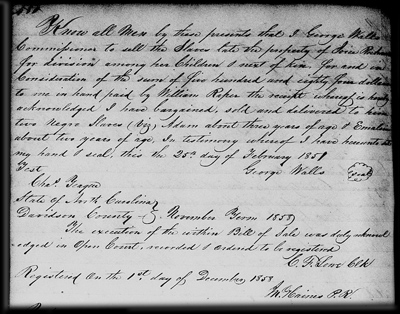 Know all Men by these presents that I George Walls
Commissioner to sell the Slaves late the property of
for division among her Children & next of kin, for and in
Consideration of the sum of five hundred and eighty four dollars
to me in hand paid by William Roper the receipt whereof is hereby
acknowledged I have bargained, sold and delivered to him
two Negro Slaves (Viz) Adam about three years of age & Emaline
about two years of age, In testimony whereof I have hereunto set
my hand & seal, this the 25th day of February 1851
Test George Walls (Seal)
Chas. Teague
State of North Carolina
Davidson County November Term 1853
The execution of the within Bill of Sale was duly acknowl
-edged in Open Court, recorded & ordered to be registered
C. F. Lowe Clk
Registered On the 1st day of December, 1853
M. Haines P. R.